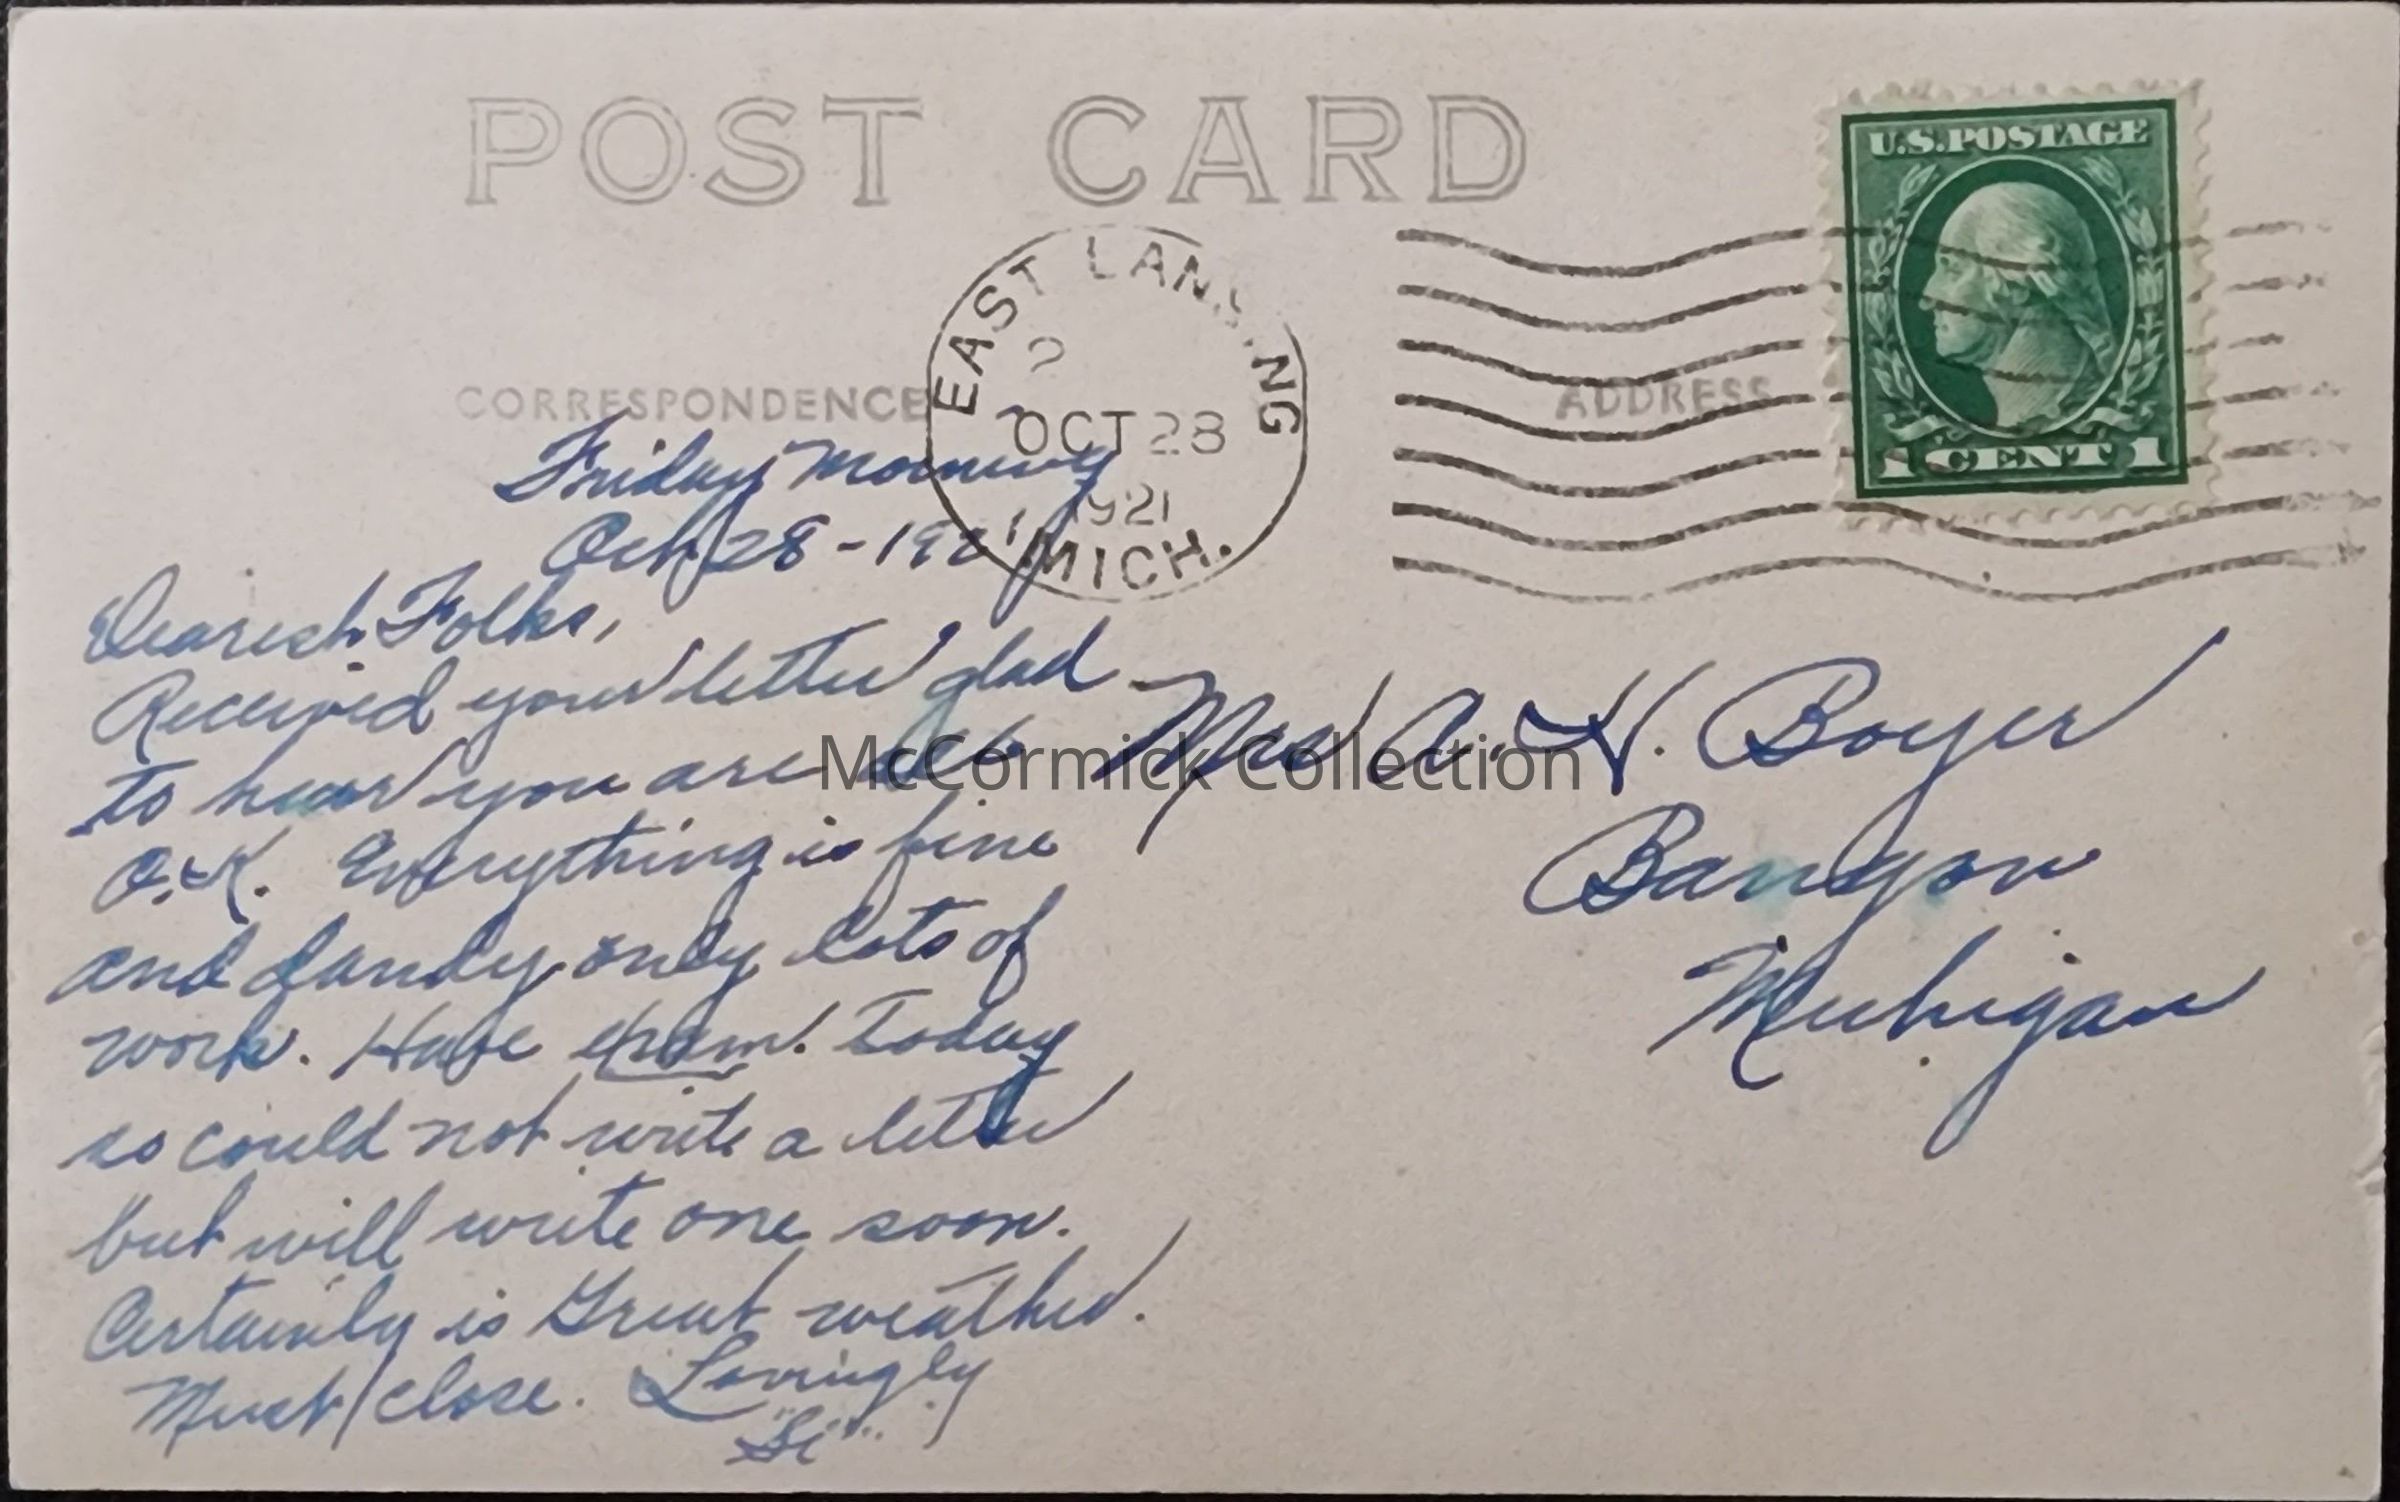 POST CARD
U.S. POSTAGE
1 CENT 1
EAST LANSING
OCT 28
1921
MICH.
CORRESPONDENCE
ADDRESS
Friday Morning
Oct 28 - 1921
Dearest Folks,
Received your letter glad
to hear you are all
O.K. Everything is fine
and dandy only lots of
work. Have exam. Today
so could not write a letter
but will write one soon.
Certainly is Great weather.
Must close. Lovingly
"Si"
Mrs A. H. Boyer
Bangor
Michigan
McCormick Collection